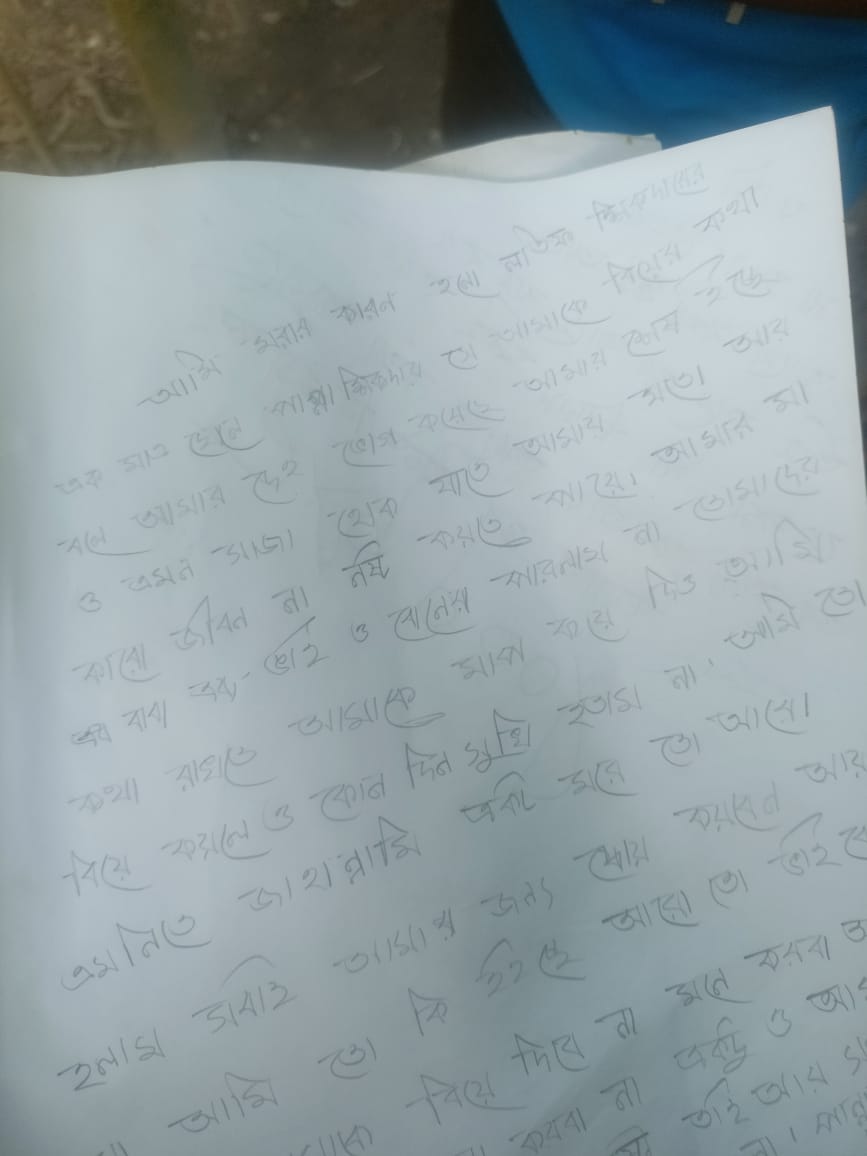 আমি মরার কারন হলো লতিফ সিকদারের
এক মাত্র ছেলে পান্না সিকদার সে আমাকে বিয়ের কথা
বলে আমার দেহ ভোগ করেছে আমার শেষ ইচ্ছে
ও এমন সাজা হোক যাতে আমার মতো আর
কারো জীবন না নষ্ট করতে পারে। আমার মা
বাবা এবং ভাই ও বোনেরা পারলাম না তোমাদের
কথা রাখতে আমাকে মাফ করে দিও আমি
বিয়ে করলে ও কোন দিন সুখি হতাম না। আমি তো
এমনিতে জাহান্নামি একটি মরে তো আরো
হলাম সবাই আমার জন্য দোয়া করবেন আর
আমি তো কি হইছে আরো তো ভাই
বিয়ে দিবে না মনে করবা
করবা না একটু ও
তাই আর